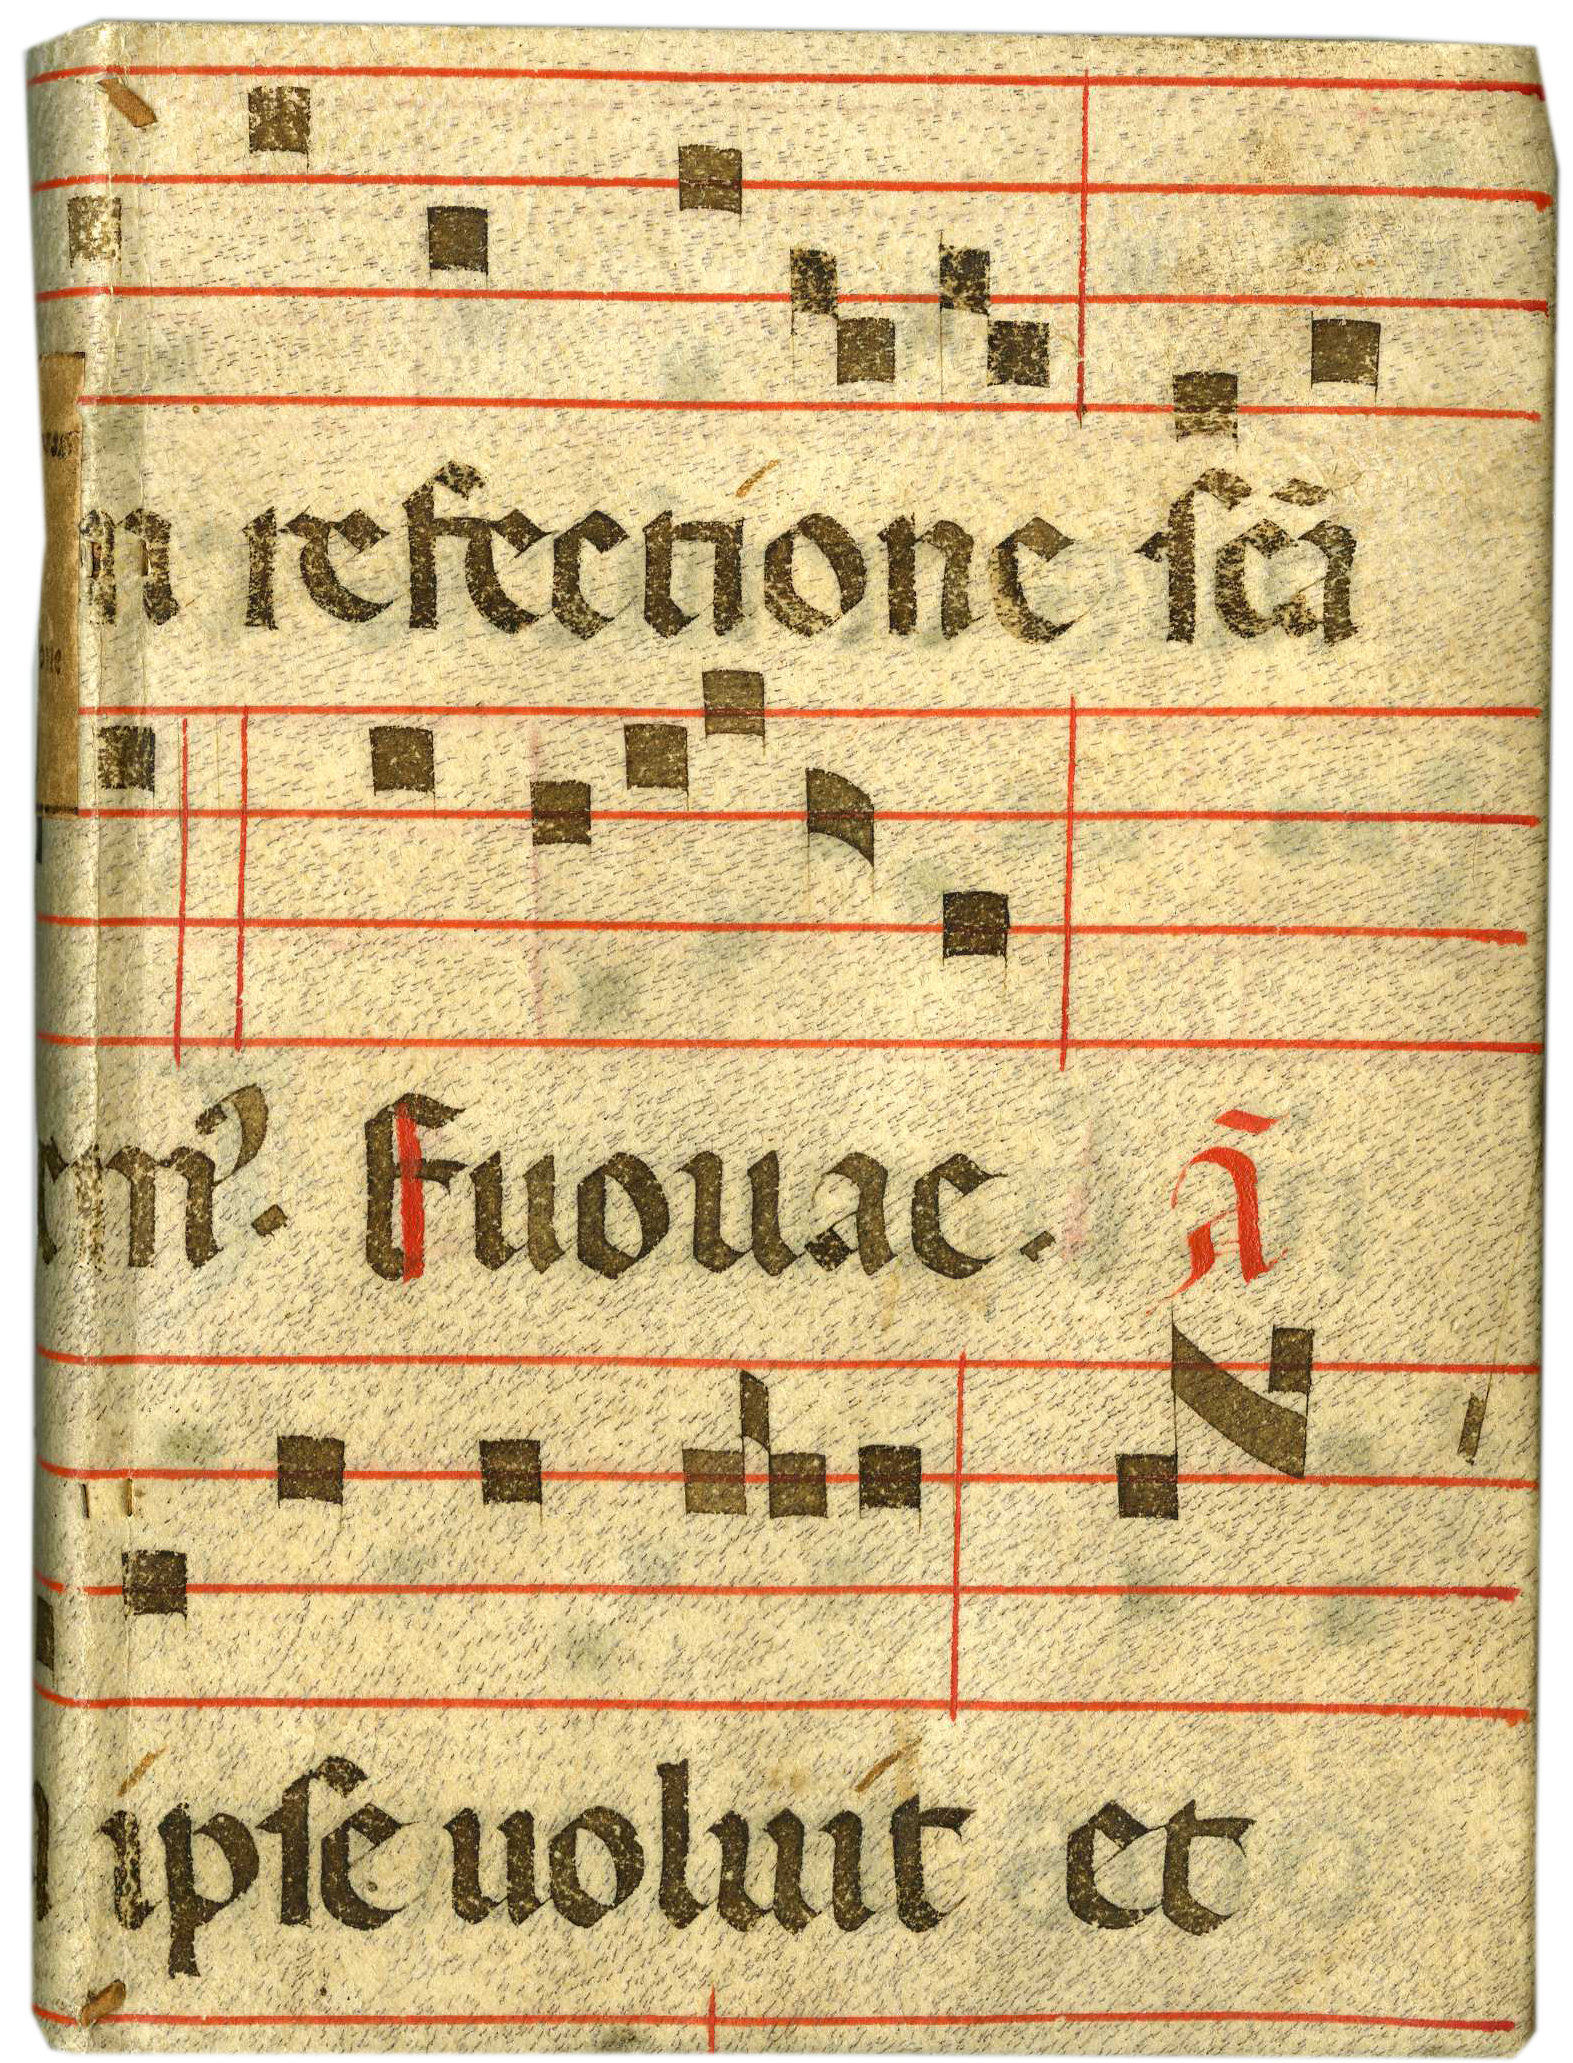 n refectione sc̄i
rm᾽. Euouae. A̅
ipse uoluit et